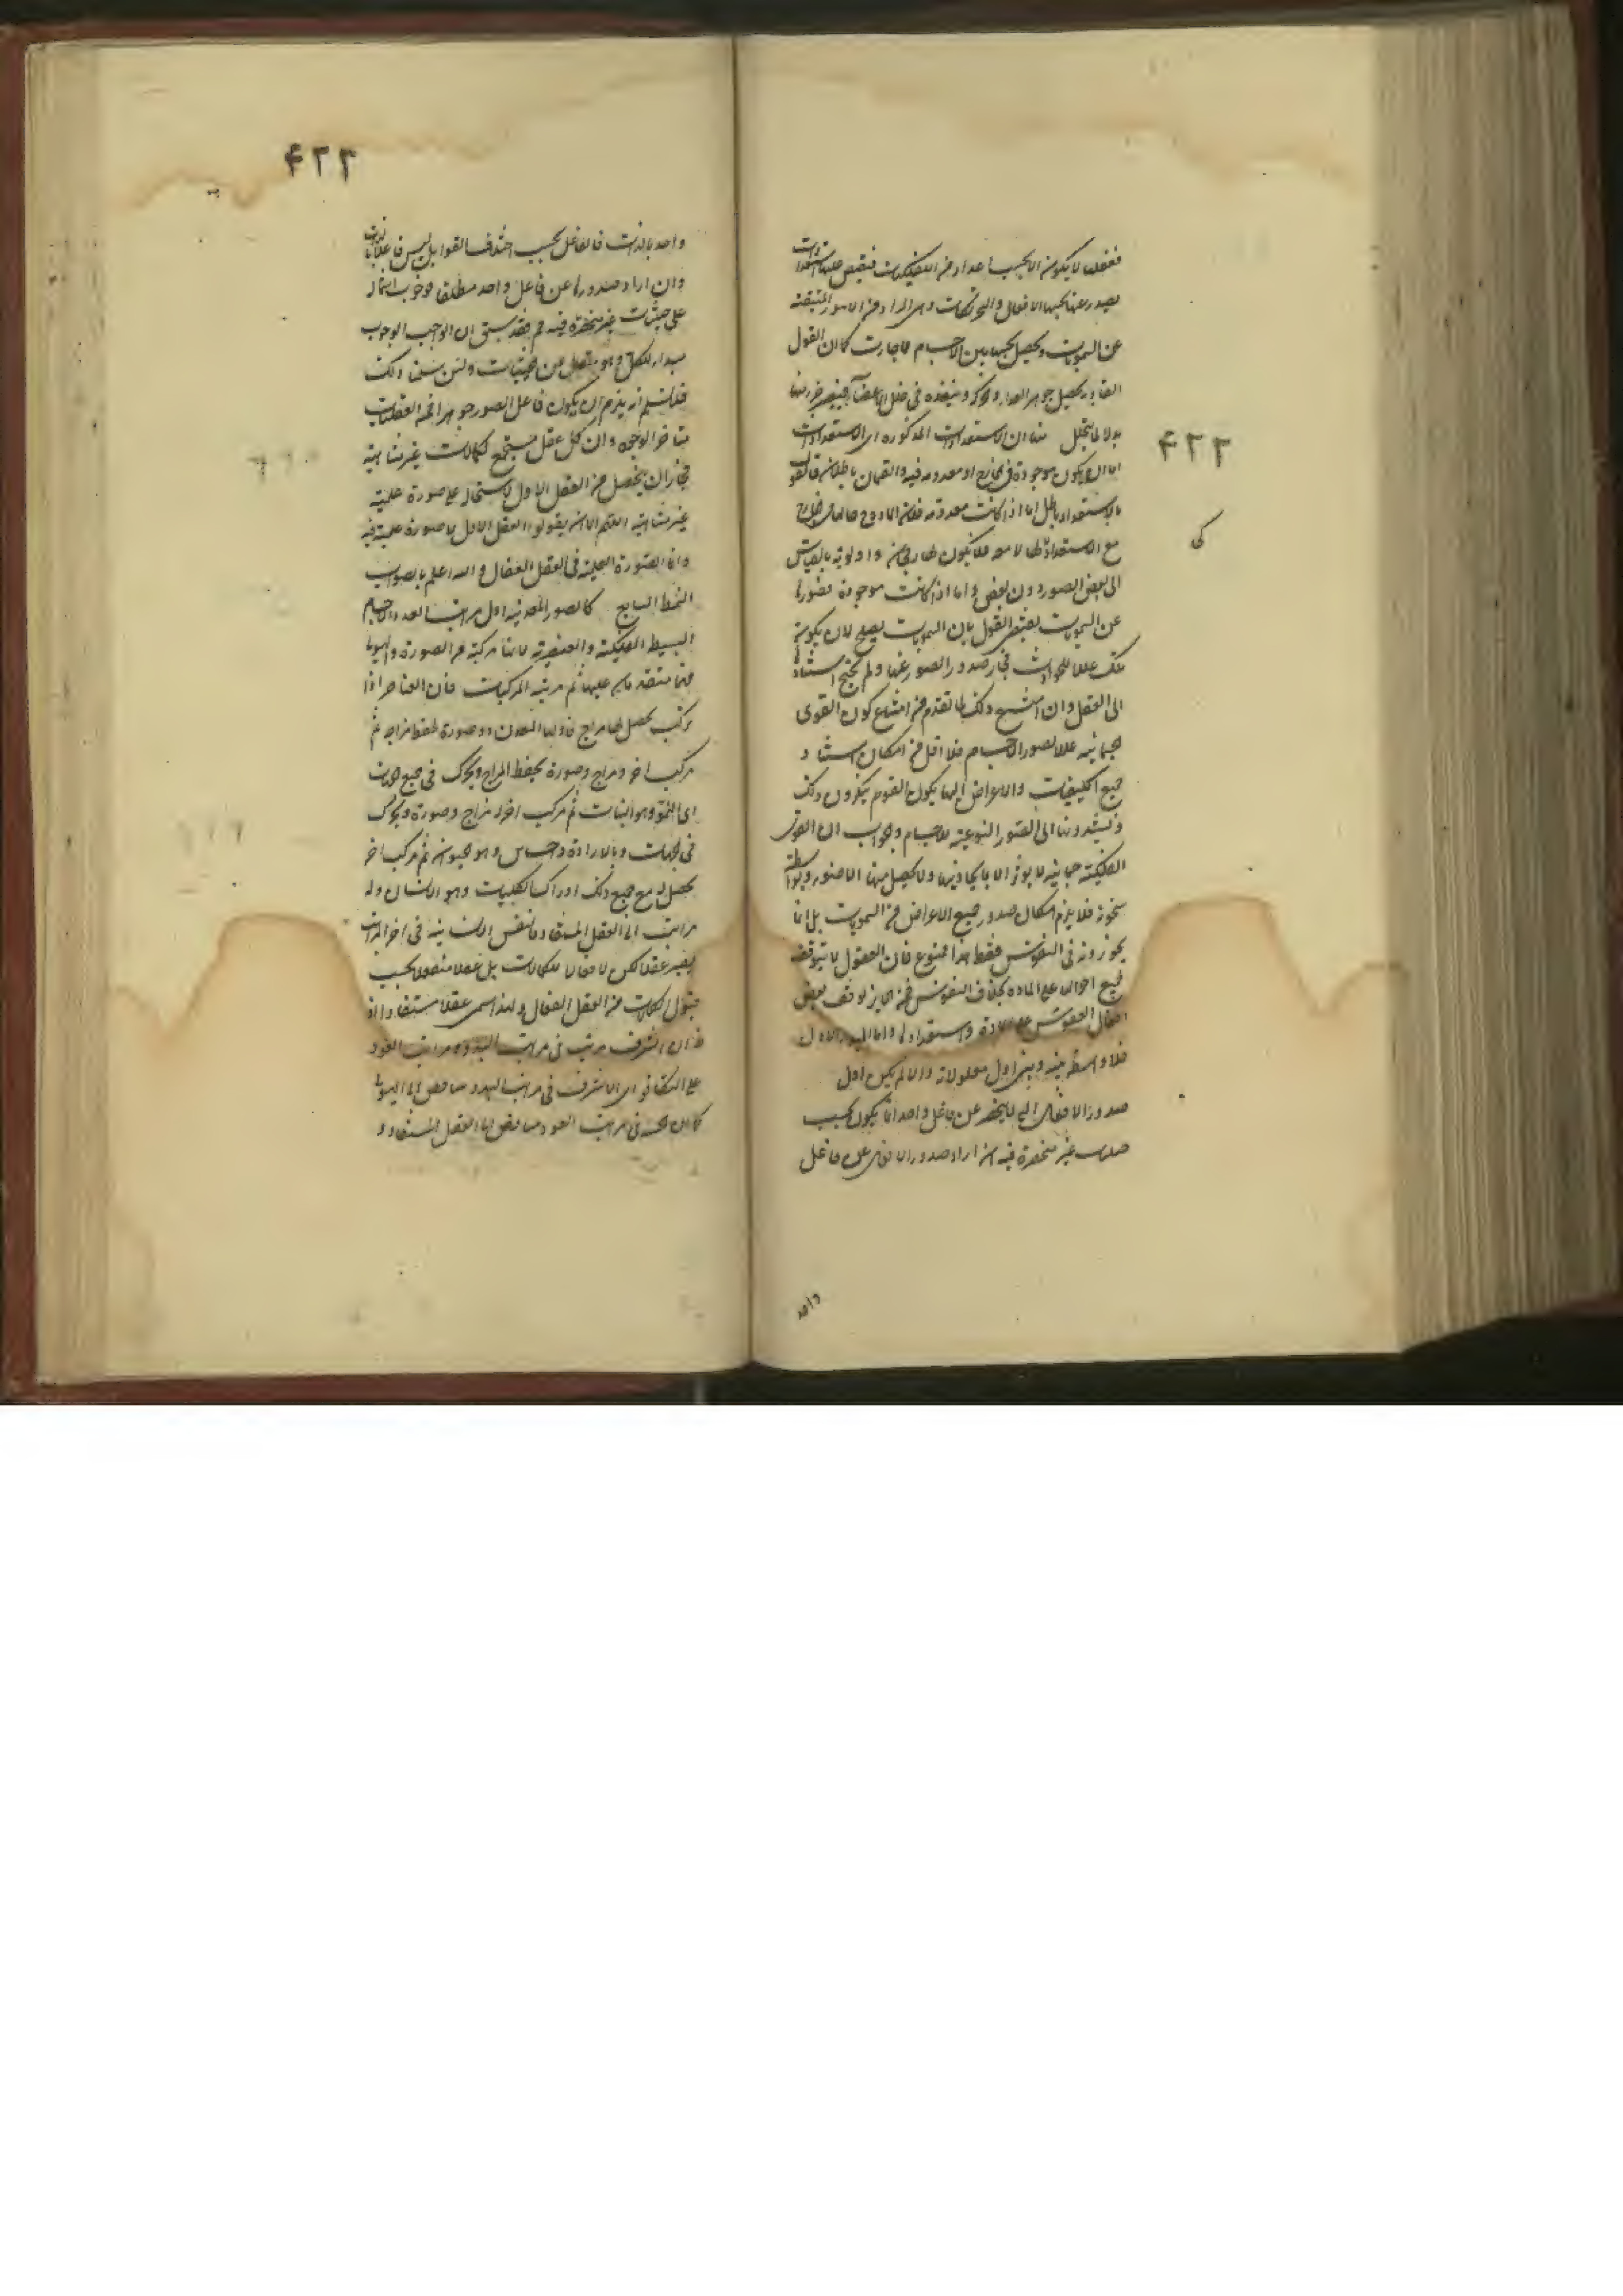 ففعلها لا يكون الا بحسب
يصدر عنها بحسبها الافعال والتحريكات وهى المراد من الامور المنبعثة
عن السمويات ويحصل بحسبها بين الاجسام كما ان القول
الغاذية يحصل جوهر الغذاء
بدلا لما يتحلل منها ان الاستعدادات المذكورة اى الاستعدادات
اما ان يكون موجودة فى الخارج او معدومة فيه والقسمان باطلان فالقول
بالاستعداد باطل اما اذا كانت معدومة فلان المادة
مع الاستعداد لها لا معه فلا يكون لها رجحان واولوية بالقياس
الى بعض الصور دون بعض واما اذا كانت موجودة فصدورها
عن السمويات يقتضى القول بان السمويات يصلح لان يكون
تلك عللا للحوادث فجاز صدور الصور عنها ولم يحتج استنادها
الى العقل وان امتنع ذلك لما تقدم من امتناع كون القوى
الجسمانية عللا لصور الاجسام فلا اقل من امكان استناد
جميع الكيفيات والاعراض اليها يكون القوم ينكرون ذلك
ويسندونها الى الصور النوعية للاجسام والجواب ان القوى
الفلكية جسمانية لا يوثر الا بما يحاذيها ولا يحصل منها الا ضوء وبواسطته
سخونة فلا يلزم امكان صدور جميع الاعراض من السمويات بل انما
يجوزونه فى النفوس فقط هذا ممنوع فان العقول لا يتوقف
جميع احوالها على المادة بخلاف النفوس فمن الجايز توقف بعض
افعال النفوس على المادة واستعدادها واما المبدء الاول
فلا واسطة بينه وبين اول معلولاته والا لم يكن اول
صدور الافعال التى لا ينحصر عن فاعل واحد انما يكون بحسب
حيثيات غير منحصرة فيه ان اراد صدور الافعال عن فاعل
واحد
۴۲۲
كى
۴۲۳
واحد بالذات فالفاعل بحسب اختلاف القوابل ليس فاعلا بالذات
وان اراد صدورها عن فاعل واحد مطلقا فوجوب اشتماله
على حيثيات غير منحصرة فيه مم فقد سبق ان الواجب الوجود
مبدء للكل وهو متعال عن الحيثيات ولئن سلمنا ذلك
فلا نسلم انه يلزم ان يكون فاعل الصور جوهرا من العقليات
متاخر الوجود وان كل عقل مستجمع لكمالات غير متناهية
فجاز ان يحصل من العقل الاول لاشتماله على صورة علمية
غير متناهية اللهم الا ان يقولوا العقل الاول لا صورة علمية فيه
وانما الصورة العلمية فى العقل الفعال والله اعلم بالصواب
النمط السابع كالصور المعدنية اول مراتب العود الاجسام
البسيط الفلكية والعنصرية لانها مركبة من الصورة والهيولى
فهما متقدمان عليها ثم مرتبة المركبات فان العناصر اذا
تركب يحصل لها مزاج فاولها المعدن ذو صورة يحفظ مزاجه ثم
مركب اخر ومزاج وصورة يحفظ المزاج ويحرك فى جميع الجهات
اى النمو وهو النبات ثم مركب اخر له مزاج وصورة ويحرك
فى الجهات وبالارادة واحساس وهو الحيوان ثم مركب اخر
يحصل له مع جميع ذلك ادراك الكليات وهو الانسان وله
مراتب الى العقل المستفاد فالنفس الانسانية فى اخر المراتب
يصير عقلا لكن لا فعالا للكمالات بل عقلا منفعلا بحسب
قبول الكمالات من العقل الفعال ولهذا سمى عقلا مستفادا
ان الشرف مرتب فى مراتب البدو ومراتب العود
على التكافو اى الاشرف فى مراتب البدو الى الهيولى
كما ان الاخس فى مراتب العود الى العقل المستفاد و